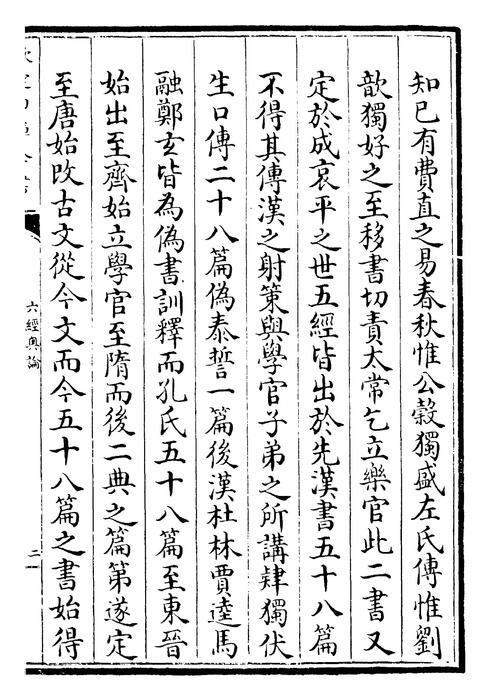 知已有費直之易春秋惟公穀獨盛左氏傳惟劉
歆獨好之至移書切責太常乞立樂官此二書又
定於成哀平之世五經皆出於先漢書五十八篇
不得其傳漢之射策與學官子弟之所講肄獨伏
生口傳二十八篇偽泰誓一篇後漢杜林賈逵馬
融鄭玄皆為偽書訓釋而孔氏五十八篇至東晉
始出至齊始立學官至隋而後二典之篇第遂定
至唐始改古文從今文而今五十八篇之書始得
六經奥論
二